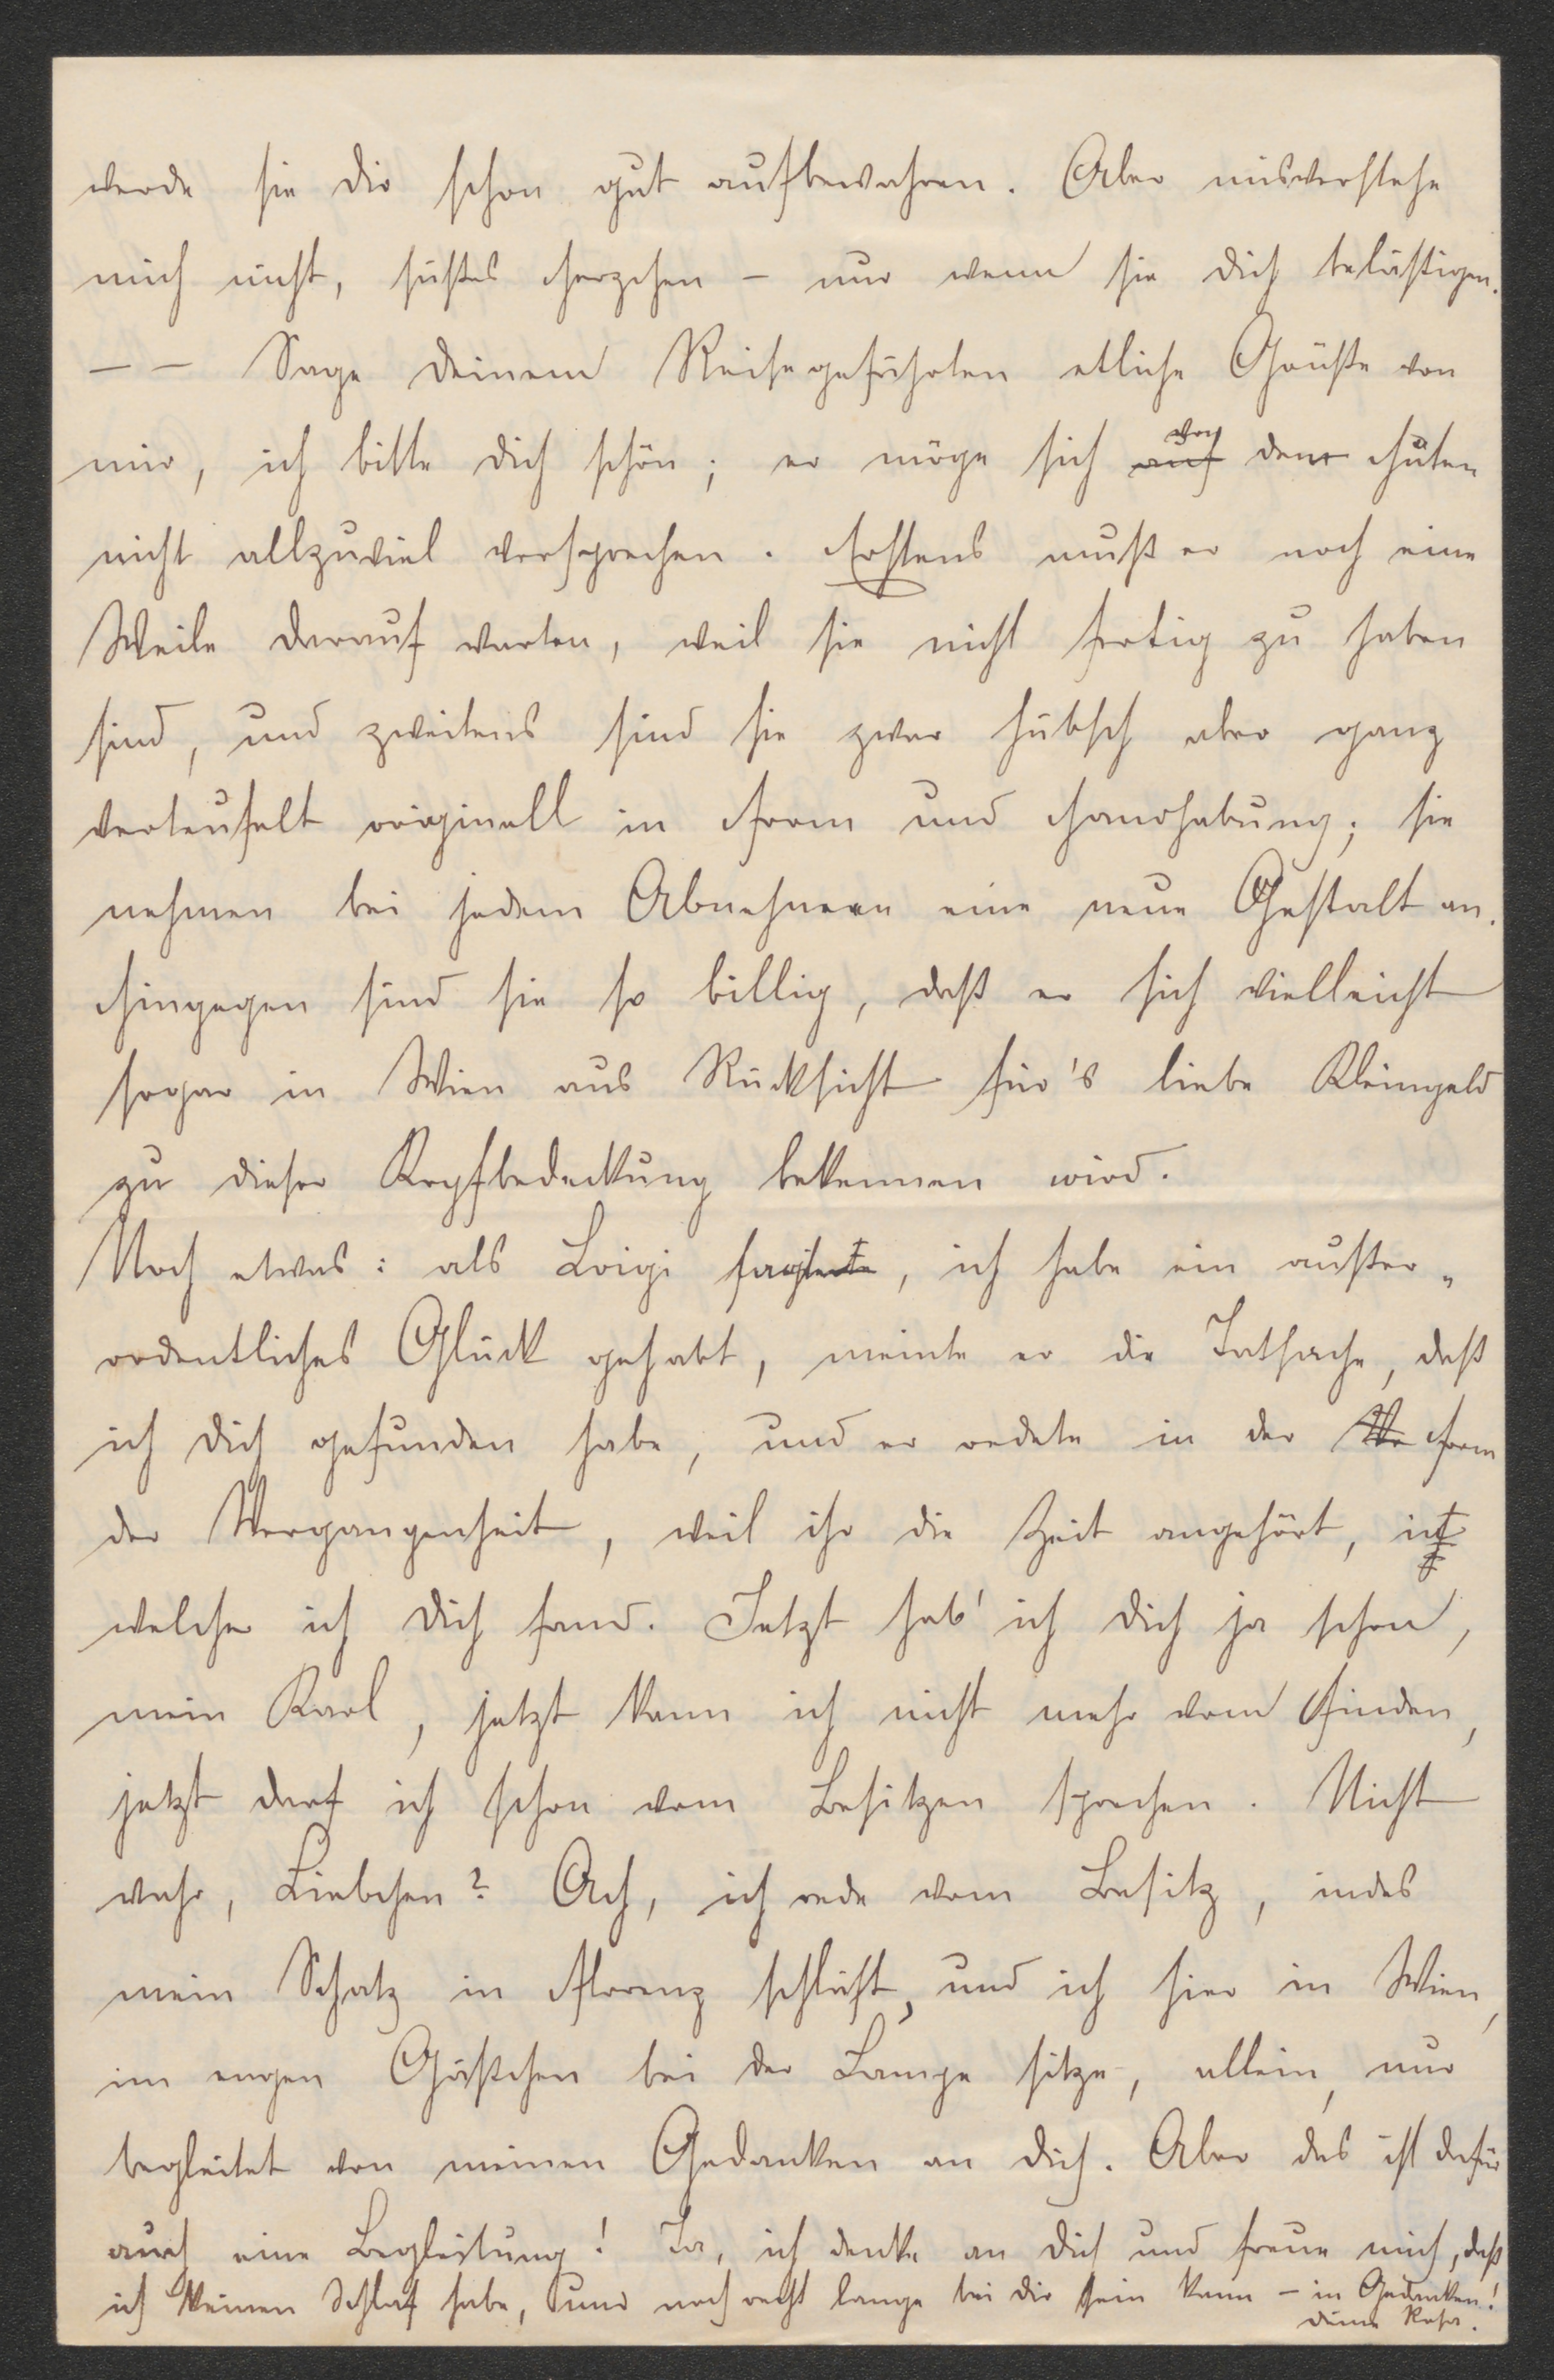 werde sie dir schon gut aufbewahren. Aber misverstehe
mich nicht, süßes Herzchen – nur wenn sie dich belästigen.
– – Sage deinem Reisegefährten etliche Grüße von
mir, ich bitte dich schön; er möge sich auf von den Hüten
nicht allzuviel versprechen. Erstens muß er noch eine
Weile darauf warten, weil sie nicht fertig zu haben
sind, und zweitens sind sie zwar hübsch aber ganz
verteufelt originell in Form und Handhabung; sie
nehmen bei jedem Abnehmen eine neue Gestalt an.
Hingegen sind sie so billig, daß er sich vielleicht
sogar in Wien aus Rücksicht für's liebe Kleingeld
zu dieser Kopfbedeckung bekennen wird.
Noch etwas: als Loigi sagte, ich habe ein außer„
ordentliches Glück gehabt, meinte er die Tatsache, daß
ich dich gefunden habe, und er redete in der Ve Form
der Vergangenheit, weil ihr die Zeit angehört, in
welcher ich dich fand. Jetzt hab' ich dich ja schon,
mein Karl, jetzt kann ich nicht mehr vom Finden,
jetzt darf ich schon vom Besitzen sprechen. Nicht
wahr, Liebchen? Ach, ich rede vom Besitz, indes
mein Schatz in Florenz schläft, und ich hier in Wien,
im engen Gäßchen bei der Lampe sitze, allein, nur
begleitet von meinen Gedanken an dich. Aber das ist dafür
auch eine Begleitung! Ja, ich denke an dich und freue mich, daß
ich keinen Schlaf habe, und noch recht lange bei dir sein kann – in Gedanken!
deine Rosa.